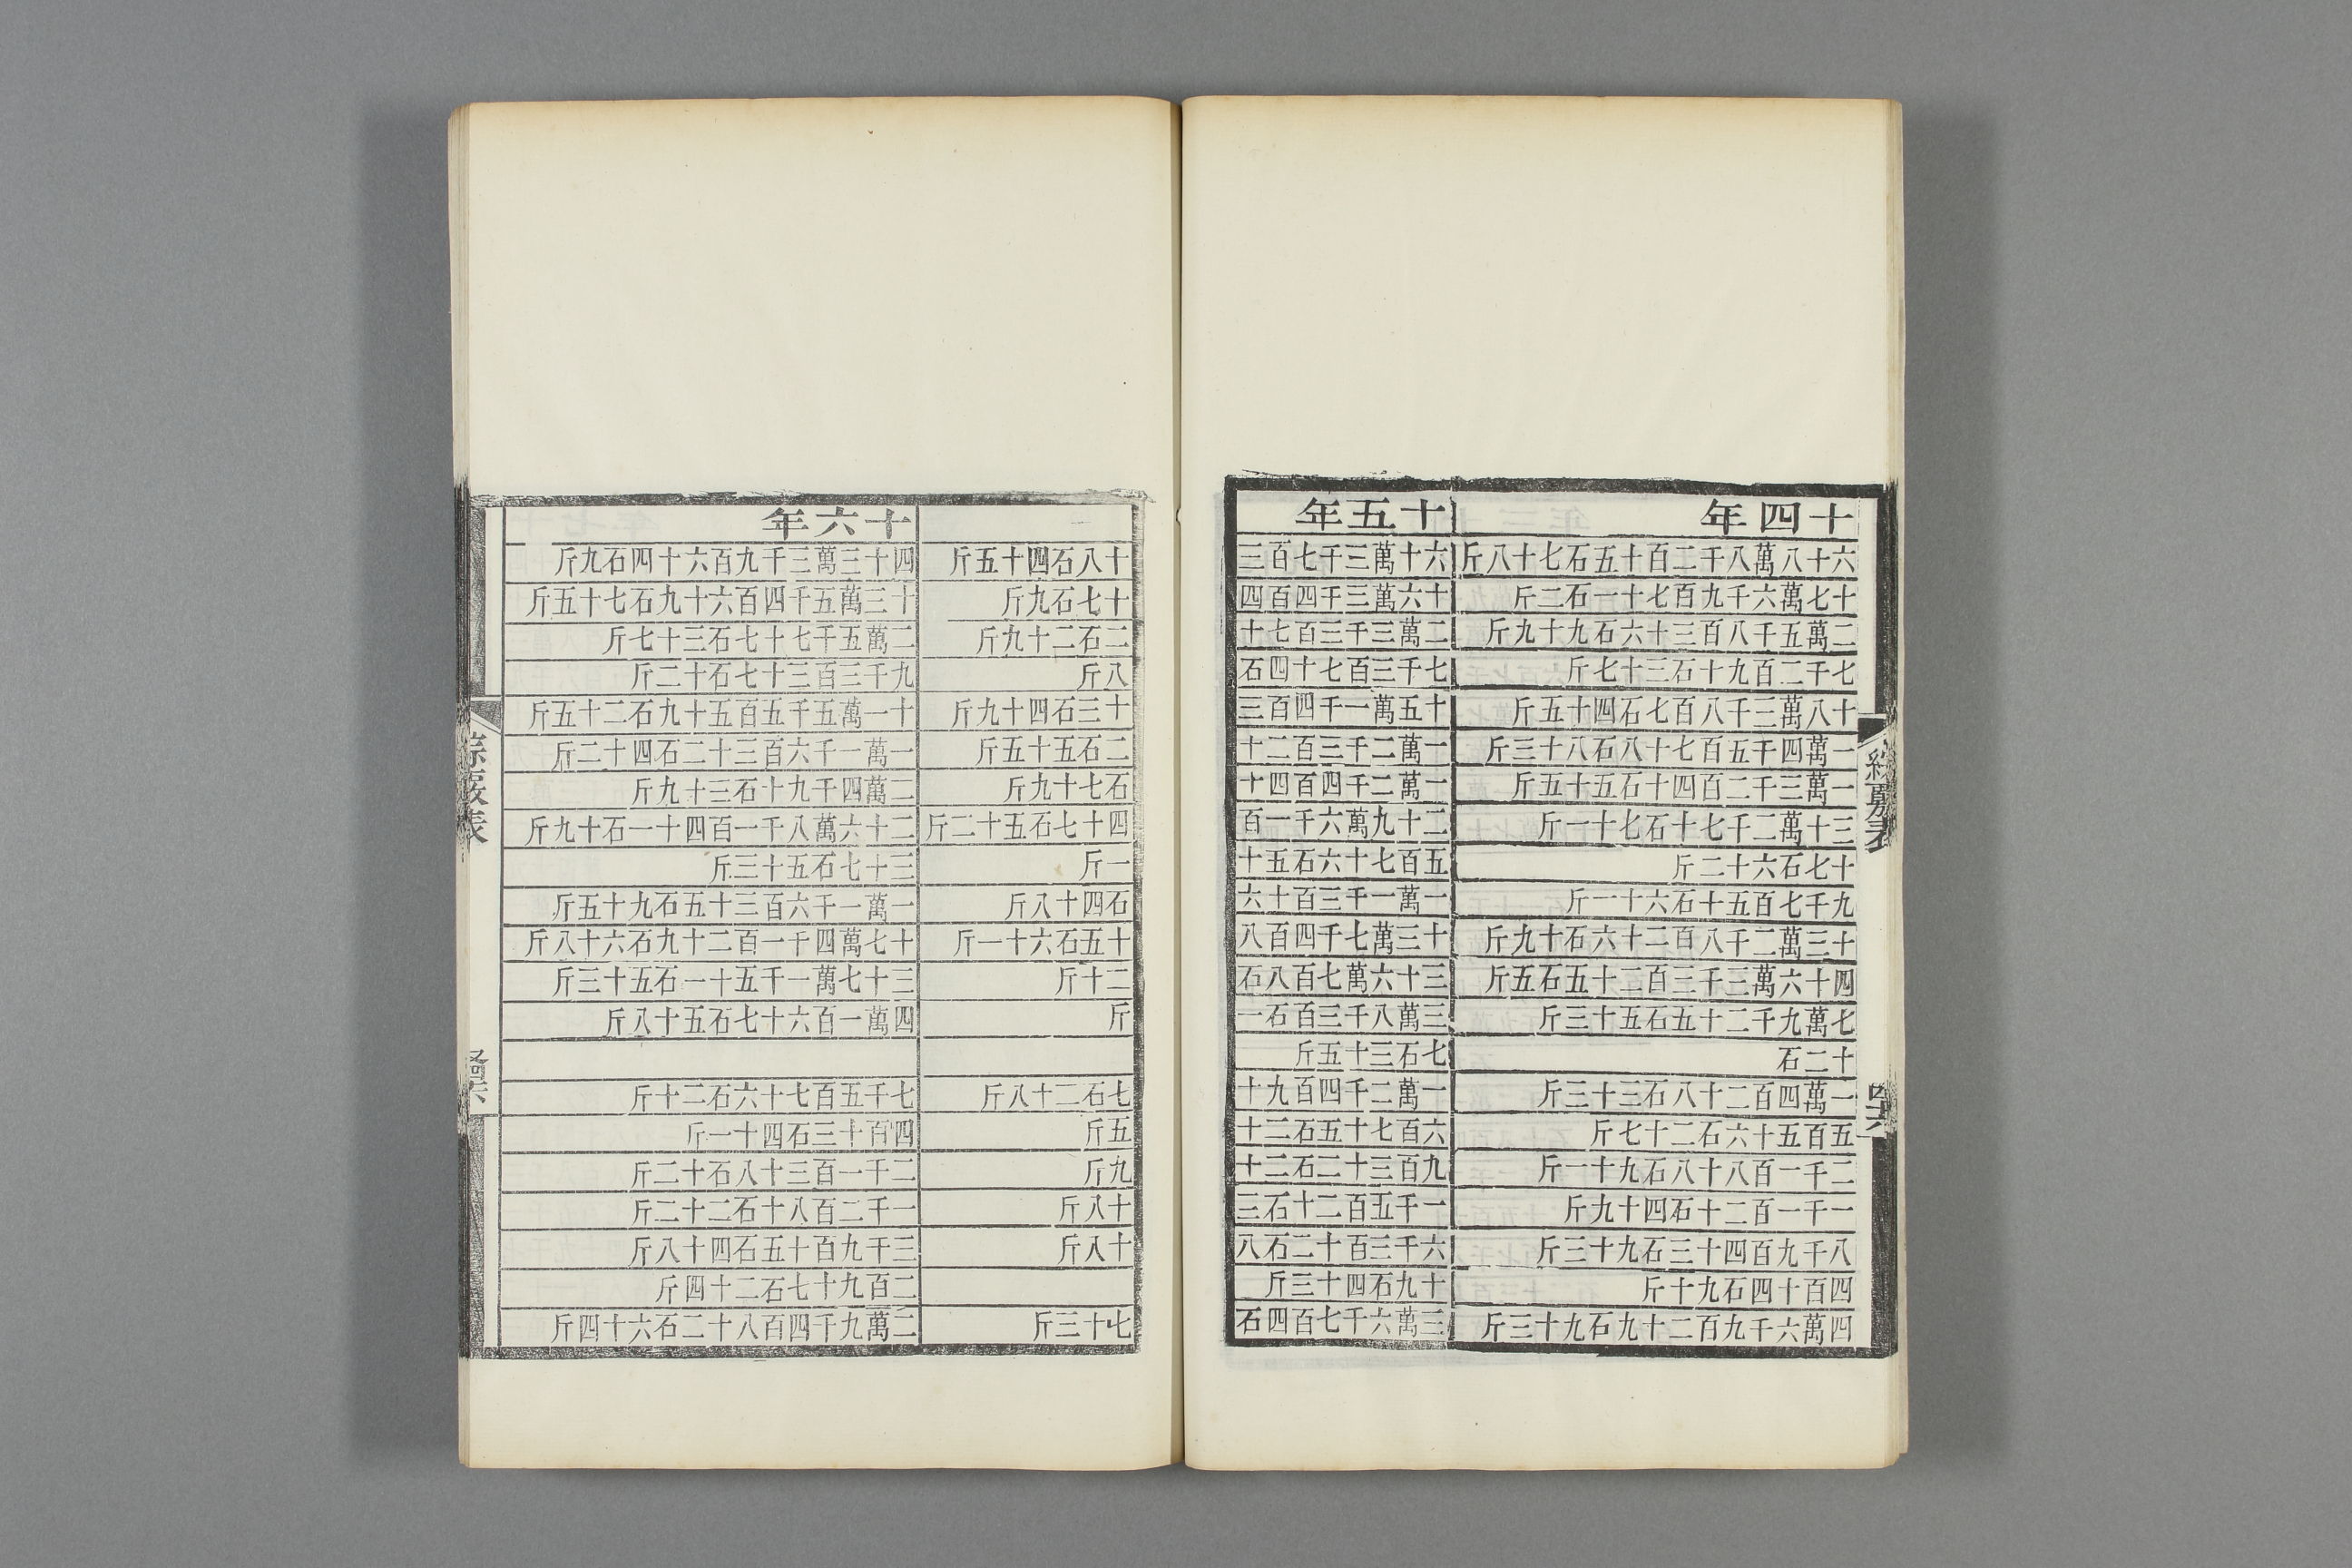 十四年
六十八萬八千二百十五石七十八斤
十七萬六千九百七十一石二斤
二萬五千八百三十六石九十九斤
七千二百九十石三十七斤
十八萬三千八百七石四十五斤
一萬四千五百七十八石八十三斤
一萬三千二百四十石五十五斤
三十萬二千七十石七十一斤
十七石六十二斤
九千七百五十石六十一斤
十三萬二千八百二十六石十九斤
四十六萬三千三百二十五石五斤
七萬九千二十五石五十三斤
十二石
一萬四百二十八石三十三斤
五百五十六石二十七斤
二千一百八十八石九十一斤
一千一百二十石四十九斤
八千九百四十三石九十三斤
四百十四石九十斤
四萬六千九百二十九石九十三斤
十五年
六十萬三千七百三
十六萬三千四百四
二萬三千三百七十
七千三百七十四石
十五萬一千四百三
一萬二千三百二十
一萬二千四百四十
二十九萬六千一百
五百七十六石五十
一萬一千三百十六
十三萬七千四百八
三十六萬七百八石
三萬八千三百石一
七石三十五斤
一萬二千四百九十
六百七十五石二十
九百三十二石二十
一千五百二十石三
六千三百十二石八
十九石四十三斤
三萬六千七百四石
十八石四十五斤
十七石九斤
二石二十九斤
八斤
十三石四十九斤
二石五十五斤
石七十九斤
四十七石五十二斤
一斤
石四十八斤
十五石六十一斤
二十斤
斤
七石二十八斤
五斤
九斤
十八斤
十八斤
七十三斤
十六年
四十三萬三千九百六十四石九斤
十三萬五千四百六十九石七十五斤
二萬五千七十七石三十七斤
九千三百三十七石十二斤
十一萬五千五百五十九石二十五斤
一萬一千六百三十二石四十二斤
二萬四千九十石三十九斤
二十六萬八千一百四十一石十九斤
三十七石五十三斤
一萬一千六百三十五石九十五斤
十七萬四千一百二十九石六十八斤
三十七萬一千五十一石五十三斤
四萬一百六十七石五十八斤
七千五百七十六石二十斤
四百十三石四十一斤
二千一百三十八石十二斤
一千二百八十石二十二斤
三千九百十五石四十八斤
二百九十七石二十四斤
二萬九千四百八十二石六十四斤